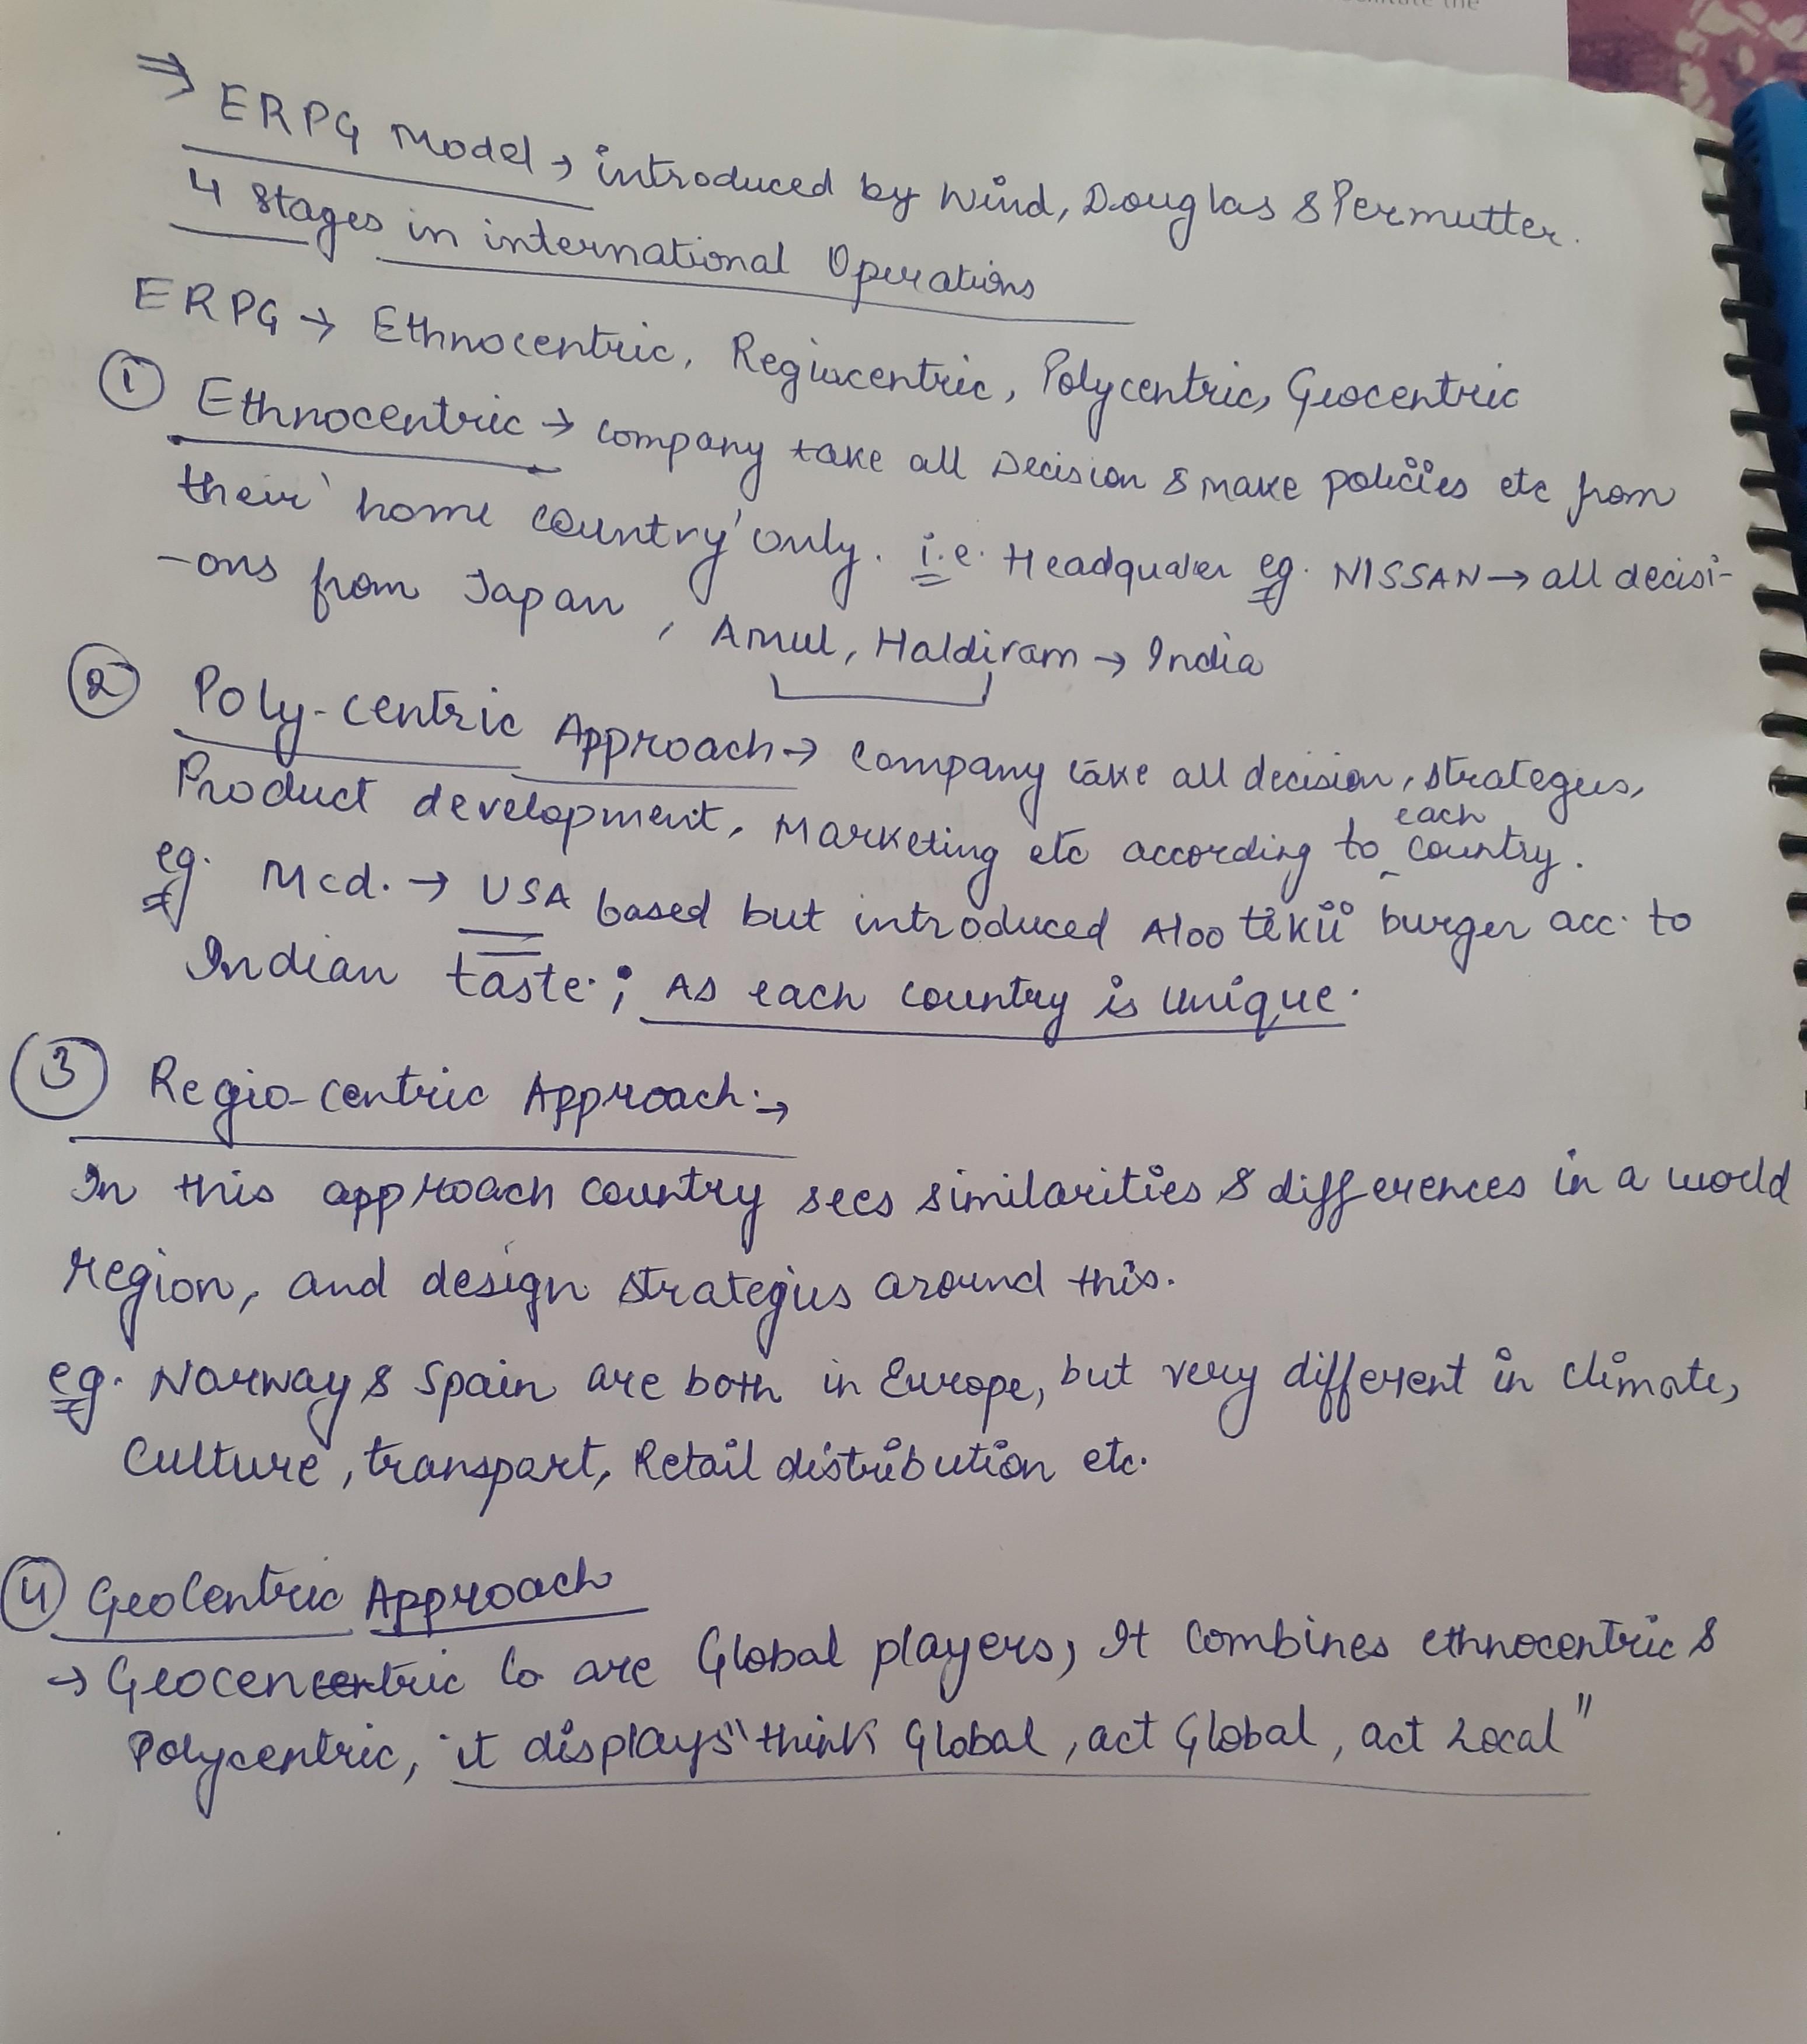 ⇒ ERPG Model → introduced by Wind, Douglas & Permutter.
4 stages in international Operations
ERPG → Ethnocentric, Regiocentric, Polycentric, Geocentric
① Ethnocentric → company take all Decision & make policies etc from
their 'home country' only. i.e. Headquater eg. NISSAN → all decisi-
-ons from Japan, Amul, Haldiram → India
② Poly-centric Approach → company take all decision, strategies,
Product development, Marketing etc according to each country.
eg. Mcd. → USA based but introduced Aloo tikii burger acc. to
Indian taste.; As each country is unique.
③ Regio-centric Approach:→
In this approach country sees similarities & differences in a world
region, and design strategies around this.
eg. Norway & Spain are both in Europe, but very different in climate,
Culture, transport, Retail distribution etc.
④ Geocentric Approach
→ Geocentric Co are Global players, It combines ethnocentric &
Polycentric, it displays "think Global, act Global, act Local"